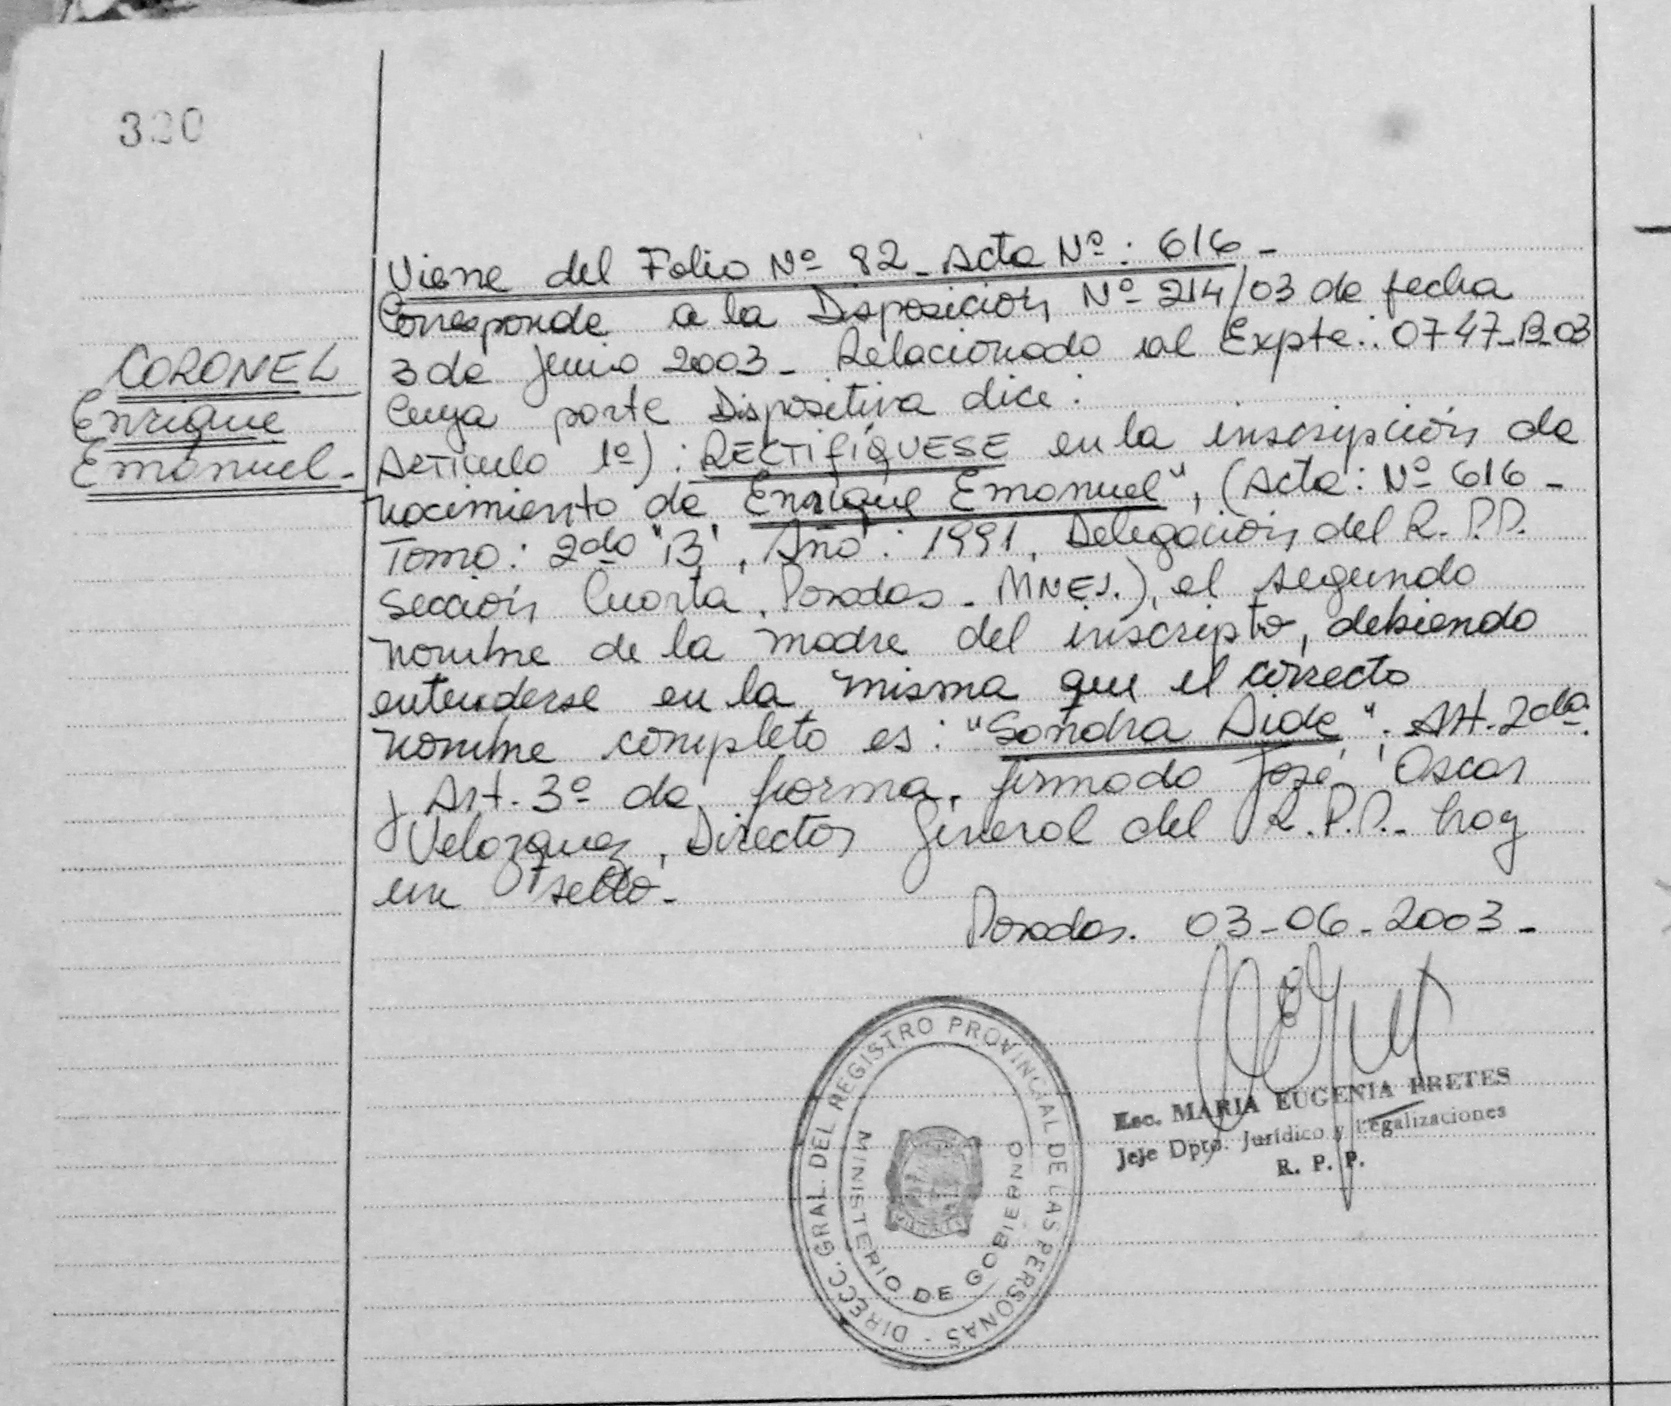 320
CORONEL
Enrique
Emanuel.-
Viene del Folio Nº 82 - Acta Nº: 616 -
Corresponde a la Disposición Nº 214/03 de fecha
3 de Junio 2003 - Relacionado al Expte: 0747-B-03
Cuya parte Dispositiva dice:
Articulo 1º): RECTIFÍQUESE en la inscripción de
nacimiento de Enrique Emanuel", (Acta: Nº 616 -
Tomo: 2do "B", Año: 1991, Delegación del R.P.P.
Sección Cuarta. Posadas - MNES.), el segundo
nombre de la madre del inscripto, debiendo
entenderse en la misma que el correcto
nombre completo es: "Sandra Aide". Art. 2do.
y Art. 3º de forma, firmado José Oscar
Velazquez, Director General del R.P.P.- hay
un sello.-
Posadas. 03-06-2003 -
DIRECC. GRAL. DEL REGISTRO PROVINCIAL DE LAS PERSONAS -
MINISTERIO DE GOBIERNO
Esc. MARIA EUGENIA PRETES
Jeje Dpto. Jurídico y Legalizaciones
R. P. P.